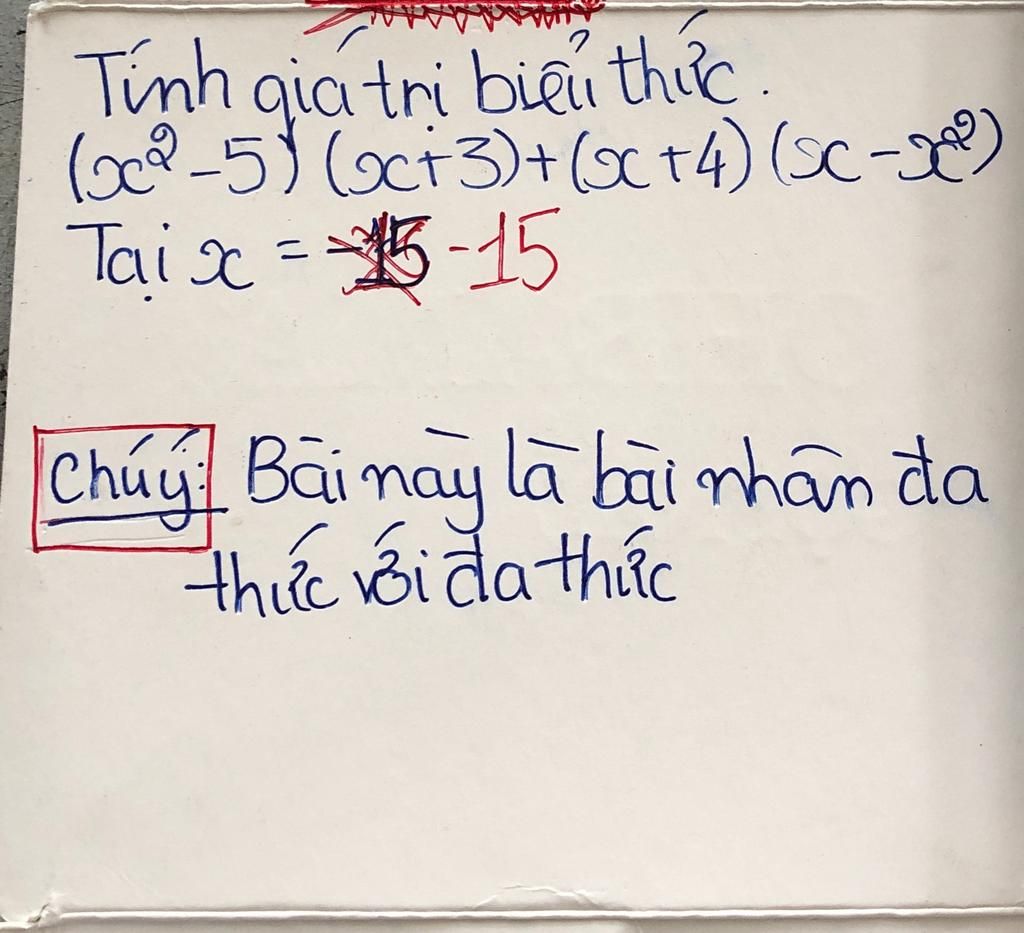 Tính giá trị biểu thức.
(x² - 5) (x + 3) + (x + 4) (x - x²)
Tại x = -15
Chú ý: Bài này là bài nhân đa
thức với đa thức